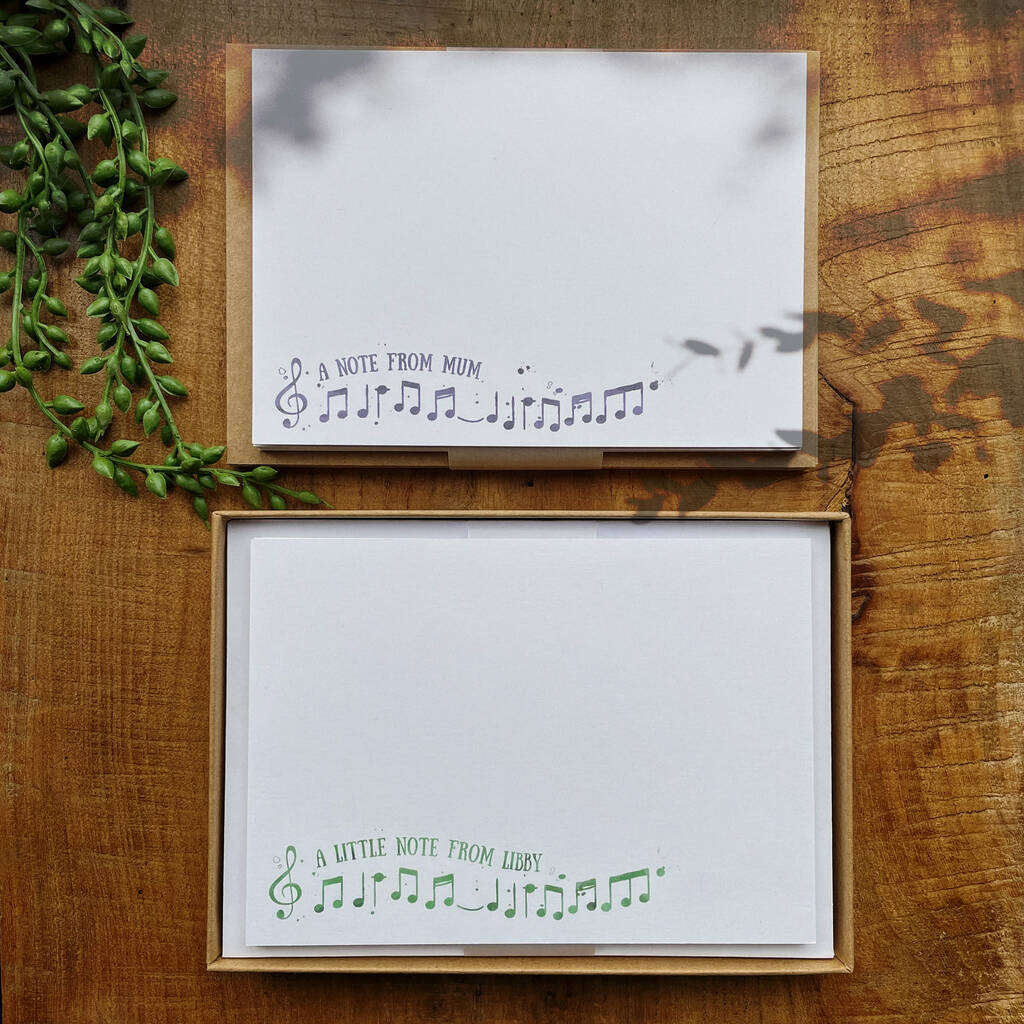 A NOTE FROM MUM
A LITTLE NOTE FROM LIBBY